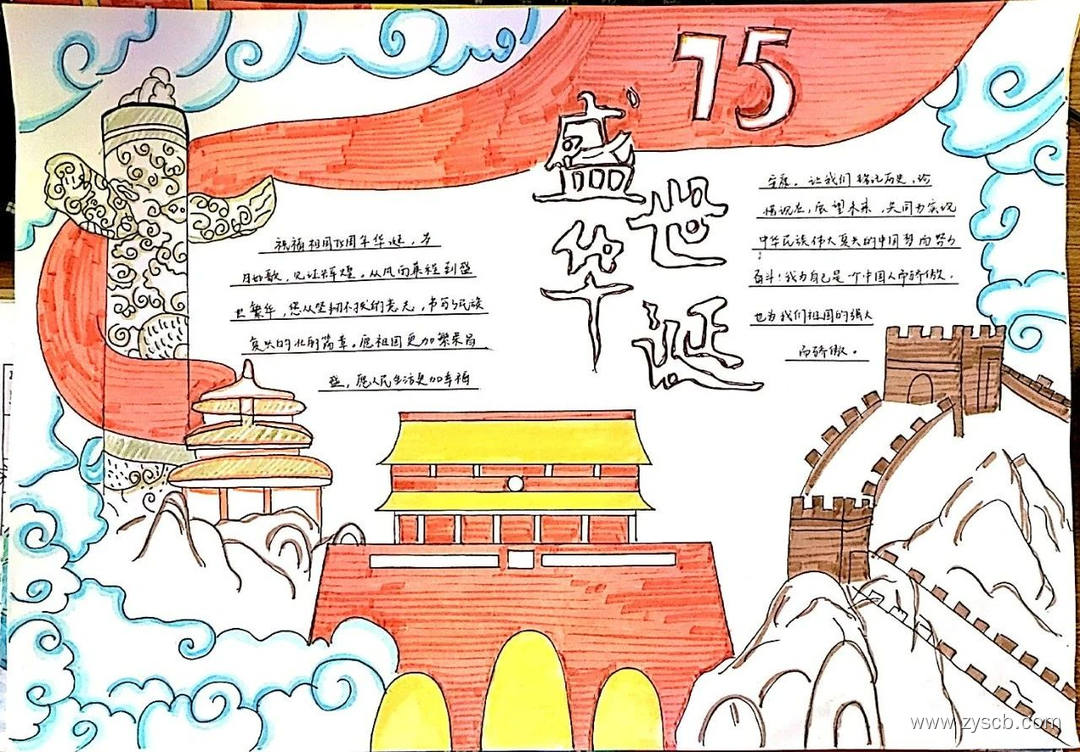 75
盛世
华诞
祝福祖国75周年华诞，岁
月如歌，见证辉煌。从风雨兼程到盛
世繁华，您从坚韧不拔的意志，书写民族
复兴的壮丽篇章。愿祖国更加繁荣昌
盛，愿人民生活更加幸福
让我们铭记历史，珍
惜现在，展望未来，共同为实现
中华民族伟大复兴的中国梦而努力
奋斗！我为自己是一个中国人而骄傲。
也为我们祖国的强大
而骄傲。
www.zyscb.com